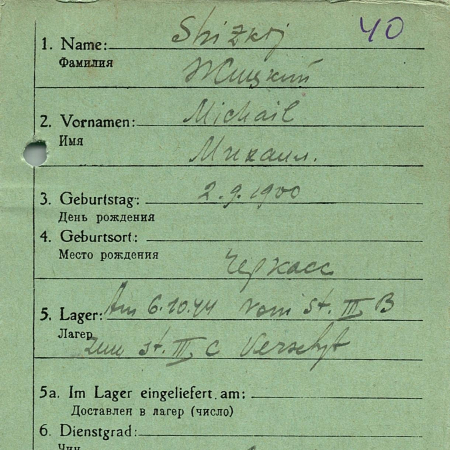 40
1. Name: Shizkij
Фамилия Жицкий
2. Vornamen: Michail
Имя Михаил.
3. Geburtstag: 2.9.1900
День рождения
4. Geburtsort:
Место рождения Черкасс
5. Lager: Am 6.10.44 vom St. III B
Лагер zum St. III C versetzt
5a. Im Lager eingeliefert am:
Доставлен в лагер (число)
6. Dienstgrad:
Чин